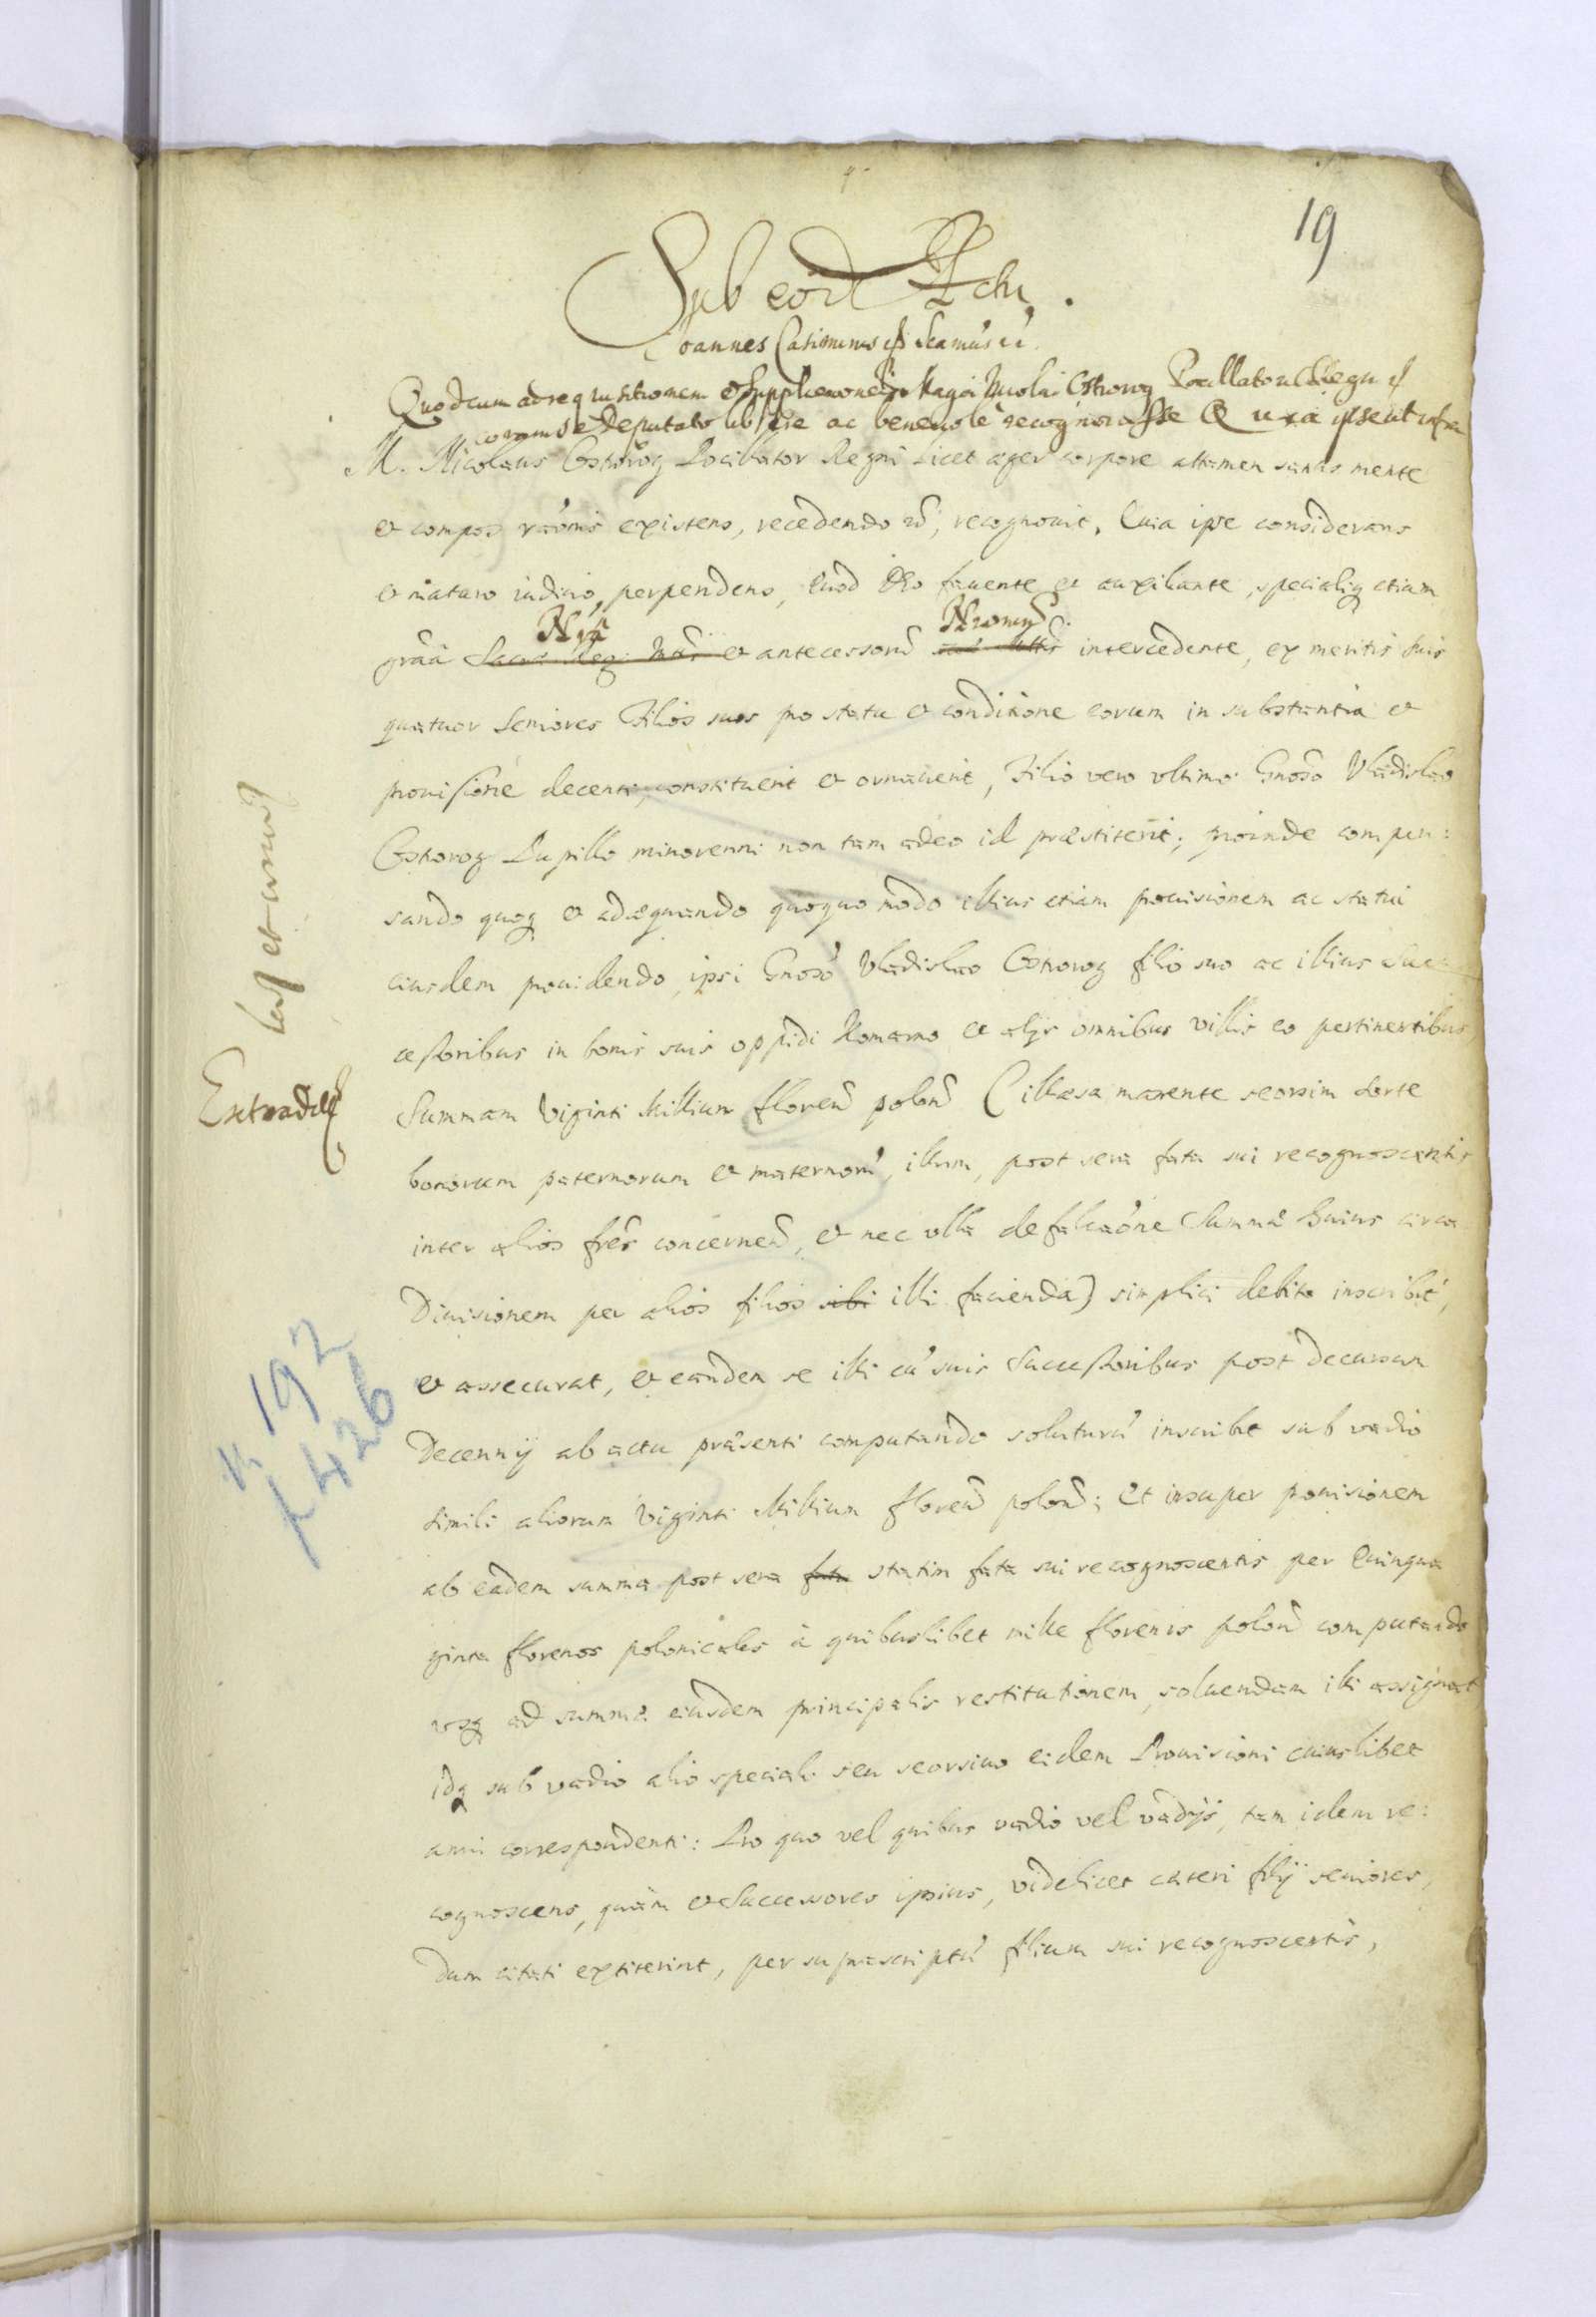 19
Sub eod Actu.
Joannes Casimirus etc. Seamus etc.
Quod cum ad requisitionem et supplicaonem Magci Nicolai Ostrorog Pocillatoris Regni etc.
coram se deputato libere ac benevole recognovisse Quia ipse ut infra
M. Nicolaus Ostrorog Pocillator Regni licet aeger corpore attamen sanus mente
et compos raonis existens, recedendo etc, recognovit. Quia ipse considerans
et maturo iudicio, perpendens, quod Deo favente et auxiliante, specialiq etiam
Nra Nrorumq
graa Sacra Reg: Mtis et antecessoru intercedente, ex meritis suis
quatuor seniores Filios suos pro statu et conditione eorum in substantia et
provisione decenti, constituerit et ornaverit, Filio vero ultimo Gnoso Vladislao
Ostrorog Pupillo minorenni non tam adeo id praestiterit; proinde compen:
sando quoq et adaequando quoquo modo illius etiam provisionem ac statui
eiusdem providendo, ipsi Gnoso Vladislao Ostrorog filio suo ac illius Succ
cessoribus in bonis suis oppidi Komarno et alijs omnibus villis eo pertinentibus,
Summam Viginti Millium floren polon (illaesa manente seorsim sorte
bonorum paternorum et maternoru, illum, post sera fata sui recognoscentis
inter alios fres concernen, et nec ulla defalcaone Summae huius circa
Divisionem per alios filios sibi illi facienda) simplici debito inscribit,
et assecurat, et eandem se illi cu suis Successoribus post decursum
Decennij ab actu praesenti computando soluturu inscribit sub vadio
simili aliorum Viginti Millium floren polon; Et insuper provisionem
ab eadem summa post sera fata statim fata sui recognoscentis per Quinqua
ginta florenos polonicales a quibuslibet mille florenis polon computando
usq ad summae eiusdem principalis restitutionem, solvendam illi assignat
idq sub vadio alio speciali seu seorsivo eidem Provisioni cuiuslibet
anni correspondenti: Pro quo vel quibus vadio vel vadijs, tam idem re:
cognoscens, quam et Successores ipsius, videlicet caeteri filij seniores,
dum citati extiterint, per suprascriptu filium sui recognoscentis,
Extradit
192
f 426